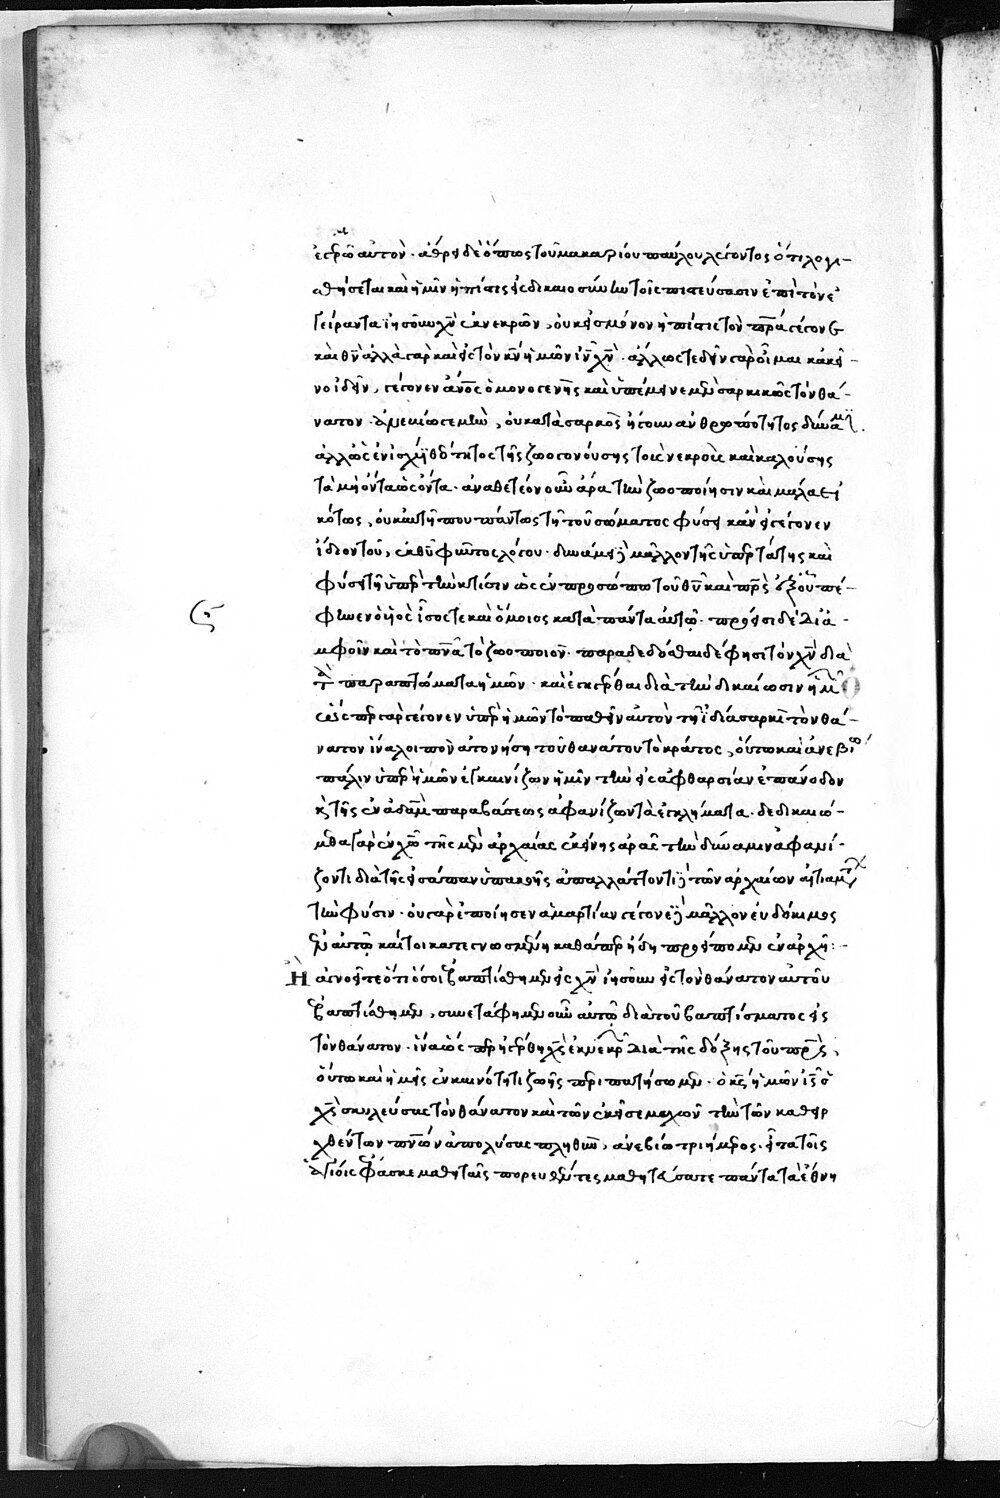 ἐκ νεκρῶν αὐτόν. ἄθρει δὲ ὅπως τοῦ μακαρίου παύλου λέγοντος ὅτι λογι-
σθήσεται καὶ ἡμῖν ἡ πίστις εἰς δικαιοσύνην τοῖς πιστεύσασιν ἐπὶ τὸν ἐ
γείραντα ἰησοῦν χν ἐκ νεκρῶν, οὐκ εἰς μόνον ἡ πίστις τὸν πρα γέγονε
καὶ θν ἀλλὰ γὰρ καὶ εἰς τὸν κν ἡμῶν ἰν χν. ἄλλως τε δεῖν γὰρ οἶμαι κἀκεῖ-
νο ἰδεῖν, γέγονεν ἄνος ὁ μονογενὴς καὶ ὑπέμεινε μὲν σαρκικῶς τὸν θά-
νατον. ἀνεβίω γε μὴν, οὐ κατὰ σαρκὸς ἤτουν ἀνθρωπότητος δύναμιν.
ἀλλ' ὡς ἐν ἰσχύϊ θεότητος τῆς ζωογονούσης τοὺς νεκροὺς καὶ καλούσης
τὰ μὴ ὄντα ὡς ὄντα. ἀναθετέον οὖν ἄρα τὴν ζωοποίησιν καὶ μάλα εἰ
κότως, οὐκ αὐτῇ που πάντως τῇ τοῦ σώματος φύσει κἂν εἰ γέγονεν
ἴδιον τοῦ, ἐκ θυ φύντος λόγου. δυνάμει μᾶλλον τῆς ὑπερτάτης καὶ
φύσει τῇ ὑπὲρ τὴν κτίσιν ὡς ἐν προσώπῳ τοῦ θυ καὶ πρς ἐξ οὗ πέ-
φηνεν ὁ υἱὸς ἶσός τε καὶ ὅμοιος κατὰ πάντα αὐτῷ. πρόσεισι δὲ δι' ἀ-
μφοῖν καὶ τὸ πνα τὸ ζωοποιοῦν. παραδεδόσθαι δέ φησι τὸν χν διὰ
τὰ παραπτώματα ἡμῶν. καὶ ἐγηγέρθαι διὰ τὴν δικαίωσιν ἡμῶν
ὥσπερ γὰρ γέγονεν ὑπὲρ ἡμῶν τὸ παθεῖν αὐτὸν τῇ ἰδίᾳ σαρκὶ τὸν θά-
νατον ἵνα λοιπὸν ἀτονήσῃ τοῦ θανάτου τὸ κράτος, οὕτω καὶ ἀνεβίω
πάλιν ὑπὲρ ἡμῶν ἐγκαινίζων ἡμῖν τὴν εἰς ἀφθαρσίαν ἐπάνοδον
κ τῆς ἐν ἀδὰμ παραβάσεως ἀφανίζων τὰ ἐγκλήματα. δεδικαιώ-
μεθα γὰρ ἐν χω τῆς μὲν ἀρχαίας ἐκείνης ἀρᾶς τὴν δύναμιν ἀφανί-
ζοντι διὰ τῆς εἰσάπαν ὑπακοῆς ἀπαλλάττοντι τῶν ἀρχαίων αἰτιαμάτων
τὴν φύσιν. οὐ γὰρ ἐποίησεν ἁμαρτίαν γέγονε μᾶλλον εὐδόκιμος
ἐν αὐτῷ καίτοι κατεγνωσμένη καθάπερ ἤδη προείπομεν ἐν ἀρχῇ:-
Ἢ ἀγνοεῖτε ὅτι ὅσοι ἐβαπτίσθημεν εἰς χν ἰησοῦν εἰς τὸν θάνατον αὐτοῦ
ἐβαπτίσθημεν, συνετάφημεν οὖν αὐτῷ διὰ τοῦ βαπτίσματος εἰς
τὸν θάνατον. ἵνα ὥσπερ ἠγέρθη χς ἐκ νεκρῶν διὰ τῆς δόξης τοῦ πρς,
οὕτω καὶ ἡμεῖς ἐν καινότητι ζωῆς περιπατήσωμεν. ὁ κς ἡμῶν ις ὁ
χς σκυλεύσας τὸν θάνατον καὶ τῶν ἐκεῖσε μυχῶν τὴν τῶν καθειρ
χθέντων πνων ἀπολύσας πληθὺν, ἀνεβίω τριήμερος. εἶτα τοῖς
ἁγίοις ἔφασκε μαθηταῖς πορευθέντες μαθητεύσατε πάντα τὰ ἔθνη